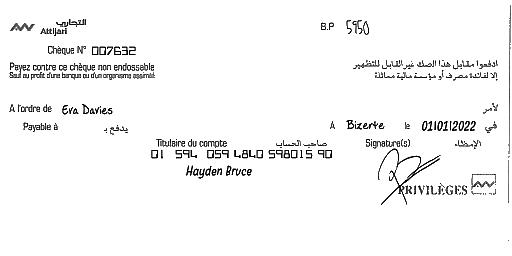 التجاري
Attijari
B.P 5950
Chèque N° 007632
Payez contre ce chèque non endossable
Sauf au profit d'une banque ou d'un organisme assimilé
ادفعوا مقابل هذا الصك غير القابل للتظهير
إلا لفائدة مصرف أو مؤسسة مالية مماثلة
A l'ordre de Eva Davies لأمر
Payable à يدفع بـ
A Bizerte le 01/01/2022 في
Titulaire du compte صاحب الحساب
Signature(s) الإمضاء
01 594 059 4840 598015 90
Hayden Bruce
PRIVILÈGES